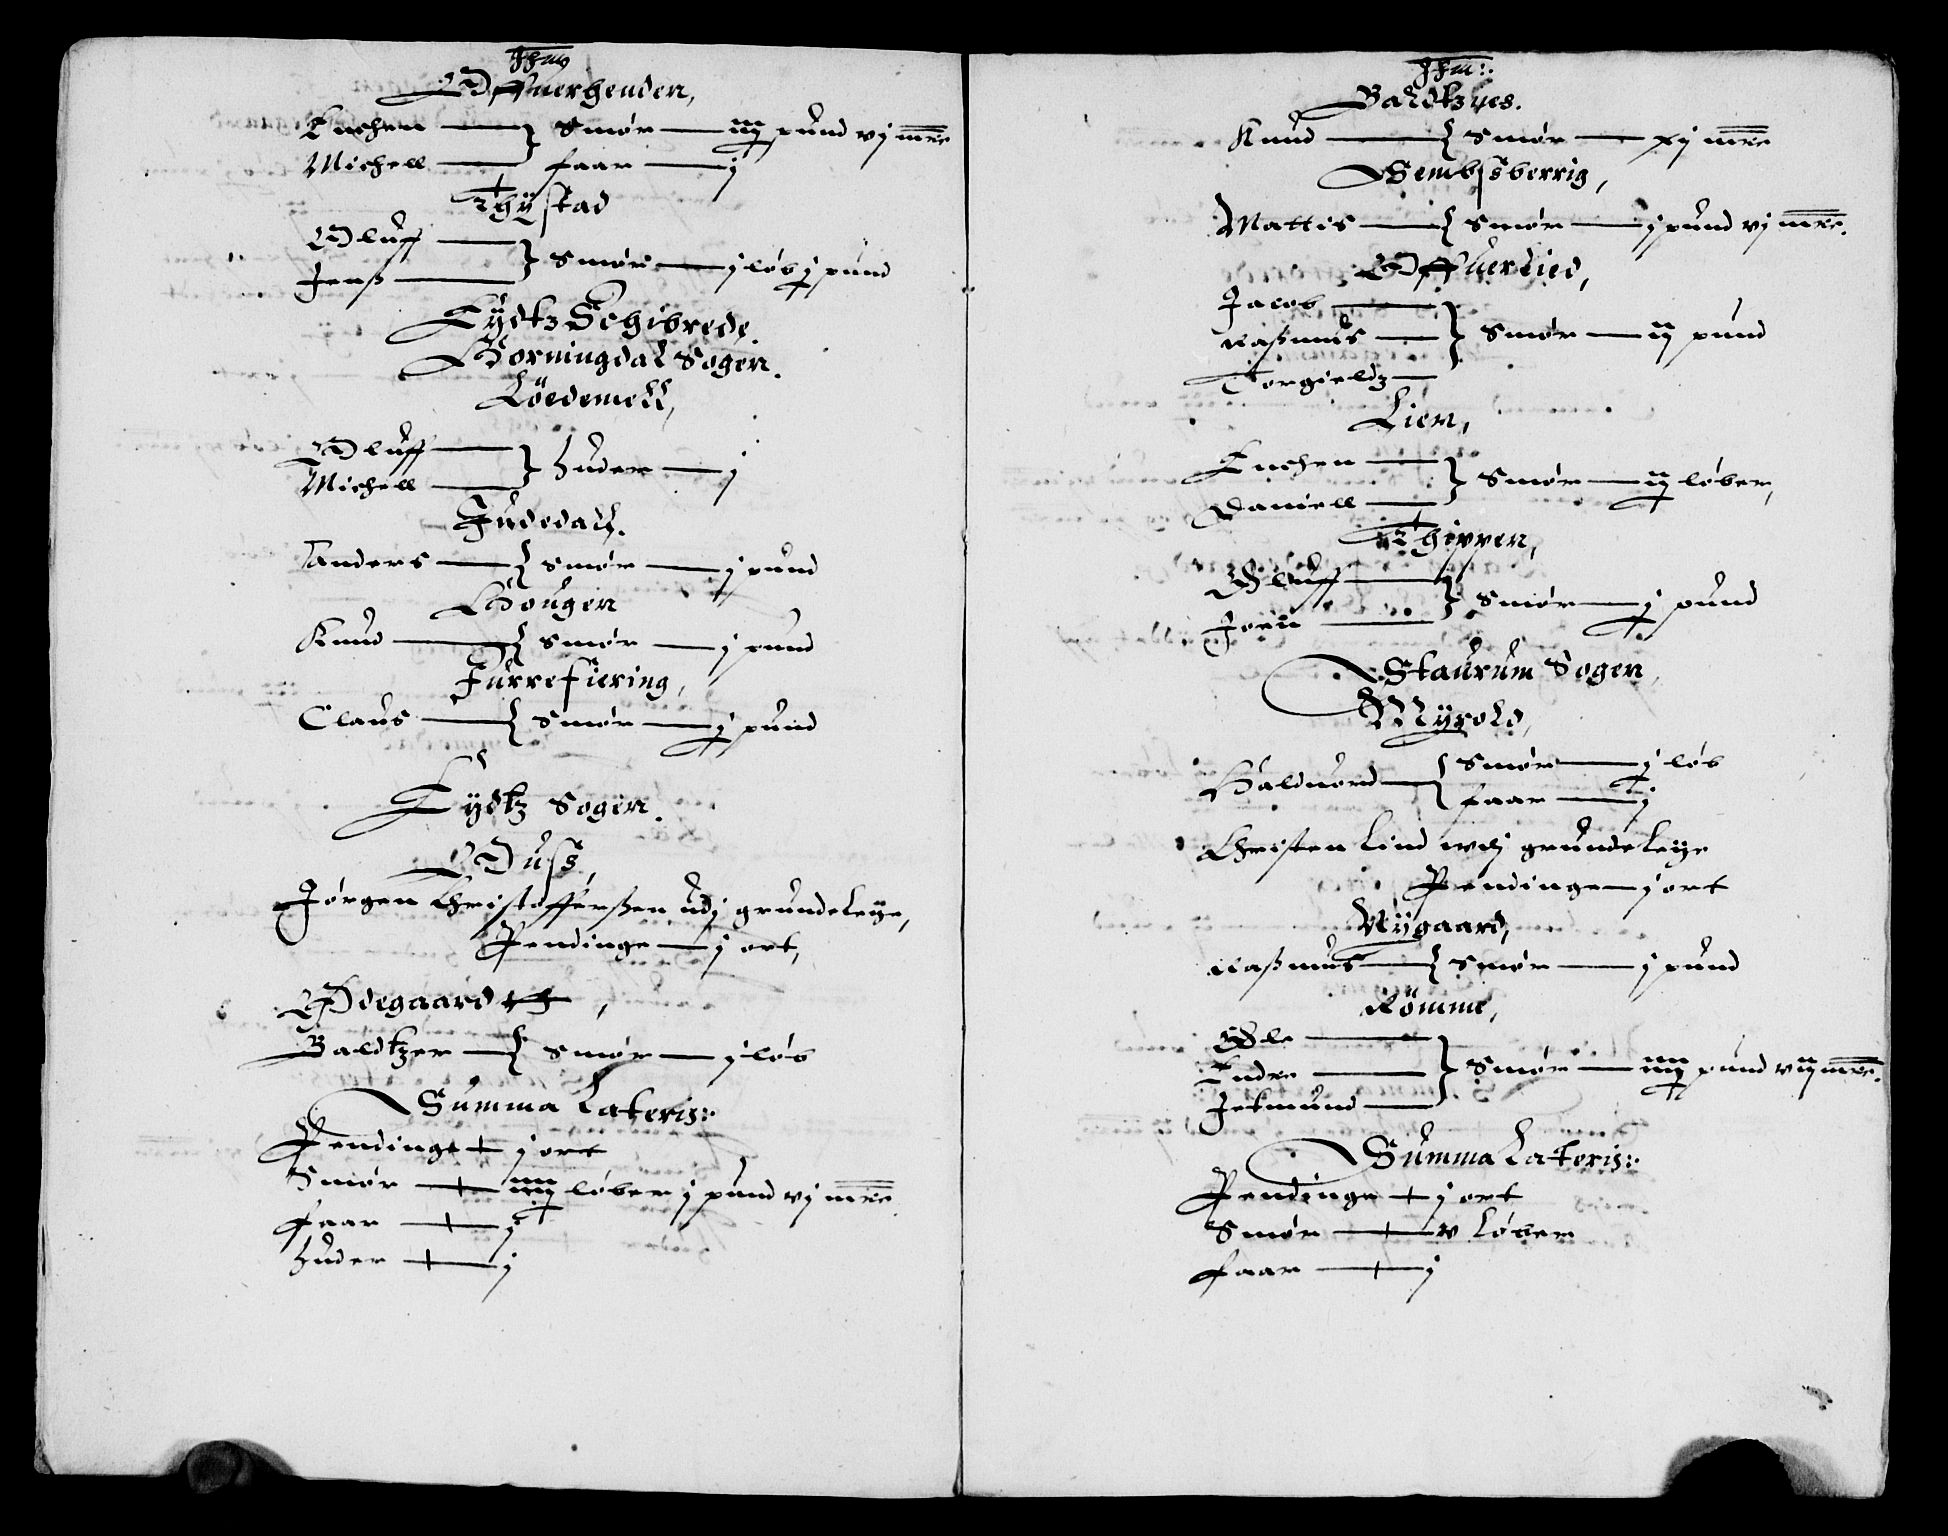 Offuerhenden,
Enchen } Smør — iij pund vj mrc
Michell } faar — j
Thÿstad
Oluff } Smør — j løb j pund
Jenß
Eÿdtz Schibrede.
Horningdal Sogen.
Löedemell,
Oluff } Huder — j
Michell
Judedall.
Anders — { Smør — j pund
Hougen
Knud — { Smør — j pund
Furrefiering,
Claus — { Smør — j pund
Eÿdtz Sogen.
Oduß,
Jørgen Christofferßen udj grundeleye,
Pendinge — j ort,
Ødegaard
Baldtzer — { Smør — j løb
Summa Lateris:
Pendinge + j ort
Smør + iiij løber j pund vj mrc
faar + j
Huder + j
Baldtznes.
Knud — { Smør — xij mrc
Sembsberrig,
Mattis — { Smør — j pund vj mrc.
Offuerlied,
Jacob
Raßmus } Smør — ij pund
Torgieldz
Lien,
Enchen } Smør — ij løber,
Daniell
Thippen,
Oluff } Smør — j pund
Joen
Staurum Sogen,
Mÿrold,
Halduord — { Smør — j løb
faar — j
Christen Lind wdj grundeleye
Pendinge — j ort
Nÿgaard,
Raßmus — { Smør — j pund
Römme,
Ole
Endre } Smør — iiij pund viij mrc.
Jetmund
Summa Lateris:
Pendinge + j ort
Smør + v Løber
faar + j